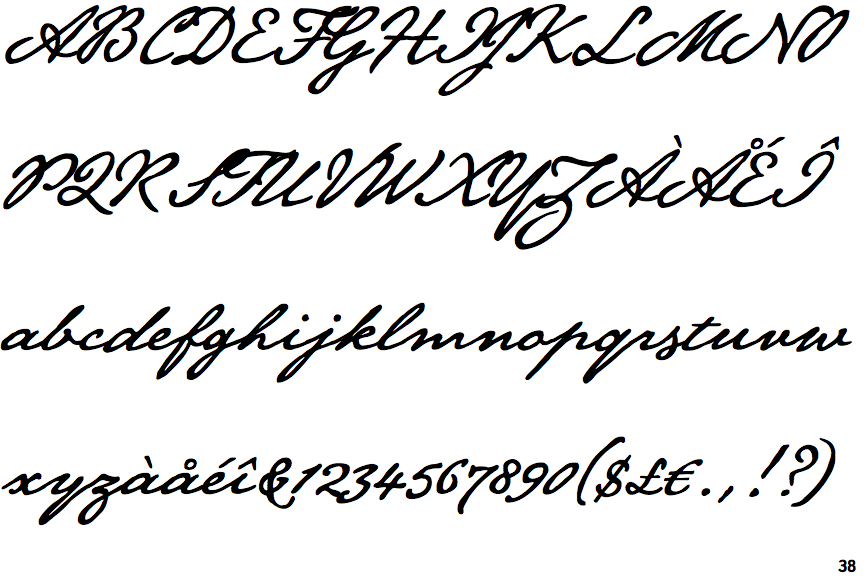 ABCDEFGHIJKLMNO
PQRSTUVWXYZÀÅÉÎ
abcdefghijklmnopqrstuvw
xyzàåéî&1234567890($£€.,!?)
38